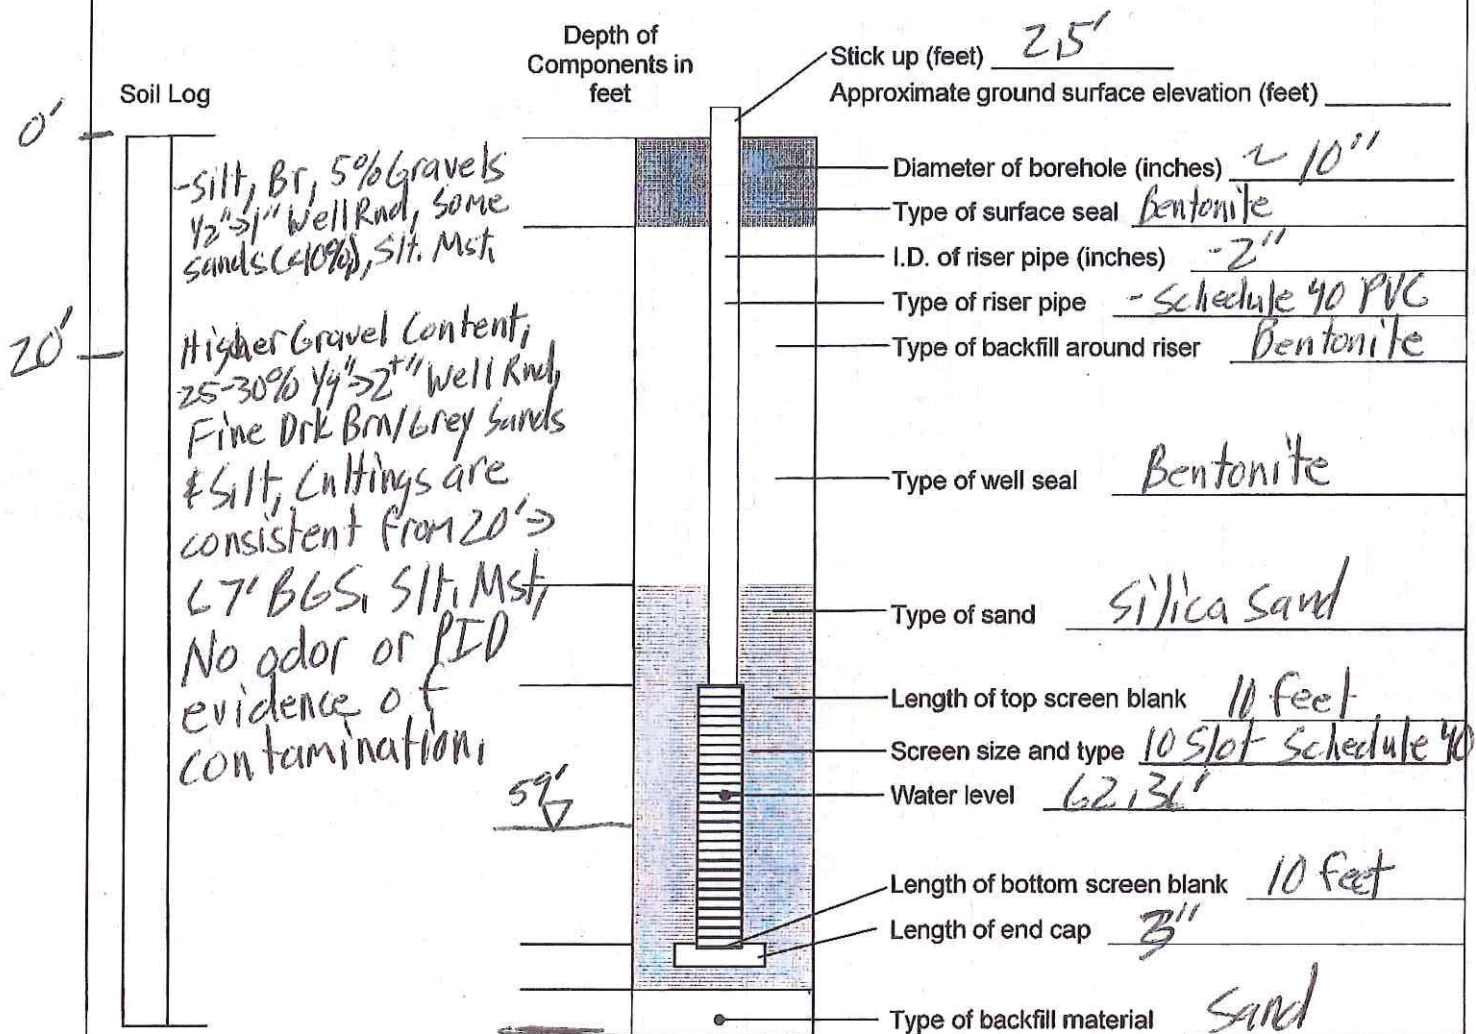 Depth of
Components in
feet
Soil Log
0'
-Silt, Br, 5% Gravels
1/2"->1" Well Rnd, Some
sands (<10%), Slt. Mst.
20'
Higher Gravel Content,
25-30% 1/4"->2+" Well Rnd,
Fine Drk Brn/Grey Sands
& Silt, Cuttings are
consistent from 20' ->
67' BGS. Slt. Mst,
No odor or PID
evidence of
contamination.
59'
Stick up (feet) 2.5'
Approximate ground surface elevation (feet)
Diameter of borehole (inches) ~ 10"
Type of surface seal Bentonite
I.D. of riser pipe (inches) -2"
Type of riser pipe - Schedule 40 PVC
Type of backfill around riser Bentonite
Type of well seal Bentonite
Type of sand Silica Sand
Length of top screen blank 10 feet
Screen size and type 10 Slot Schedule 40
Water level 62.36'
Length of bottom screen blank 10 feet
Length of end cap 3"
Type of backfill material Sand